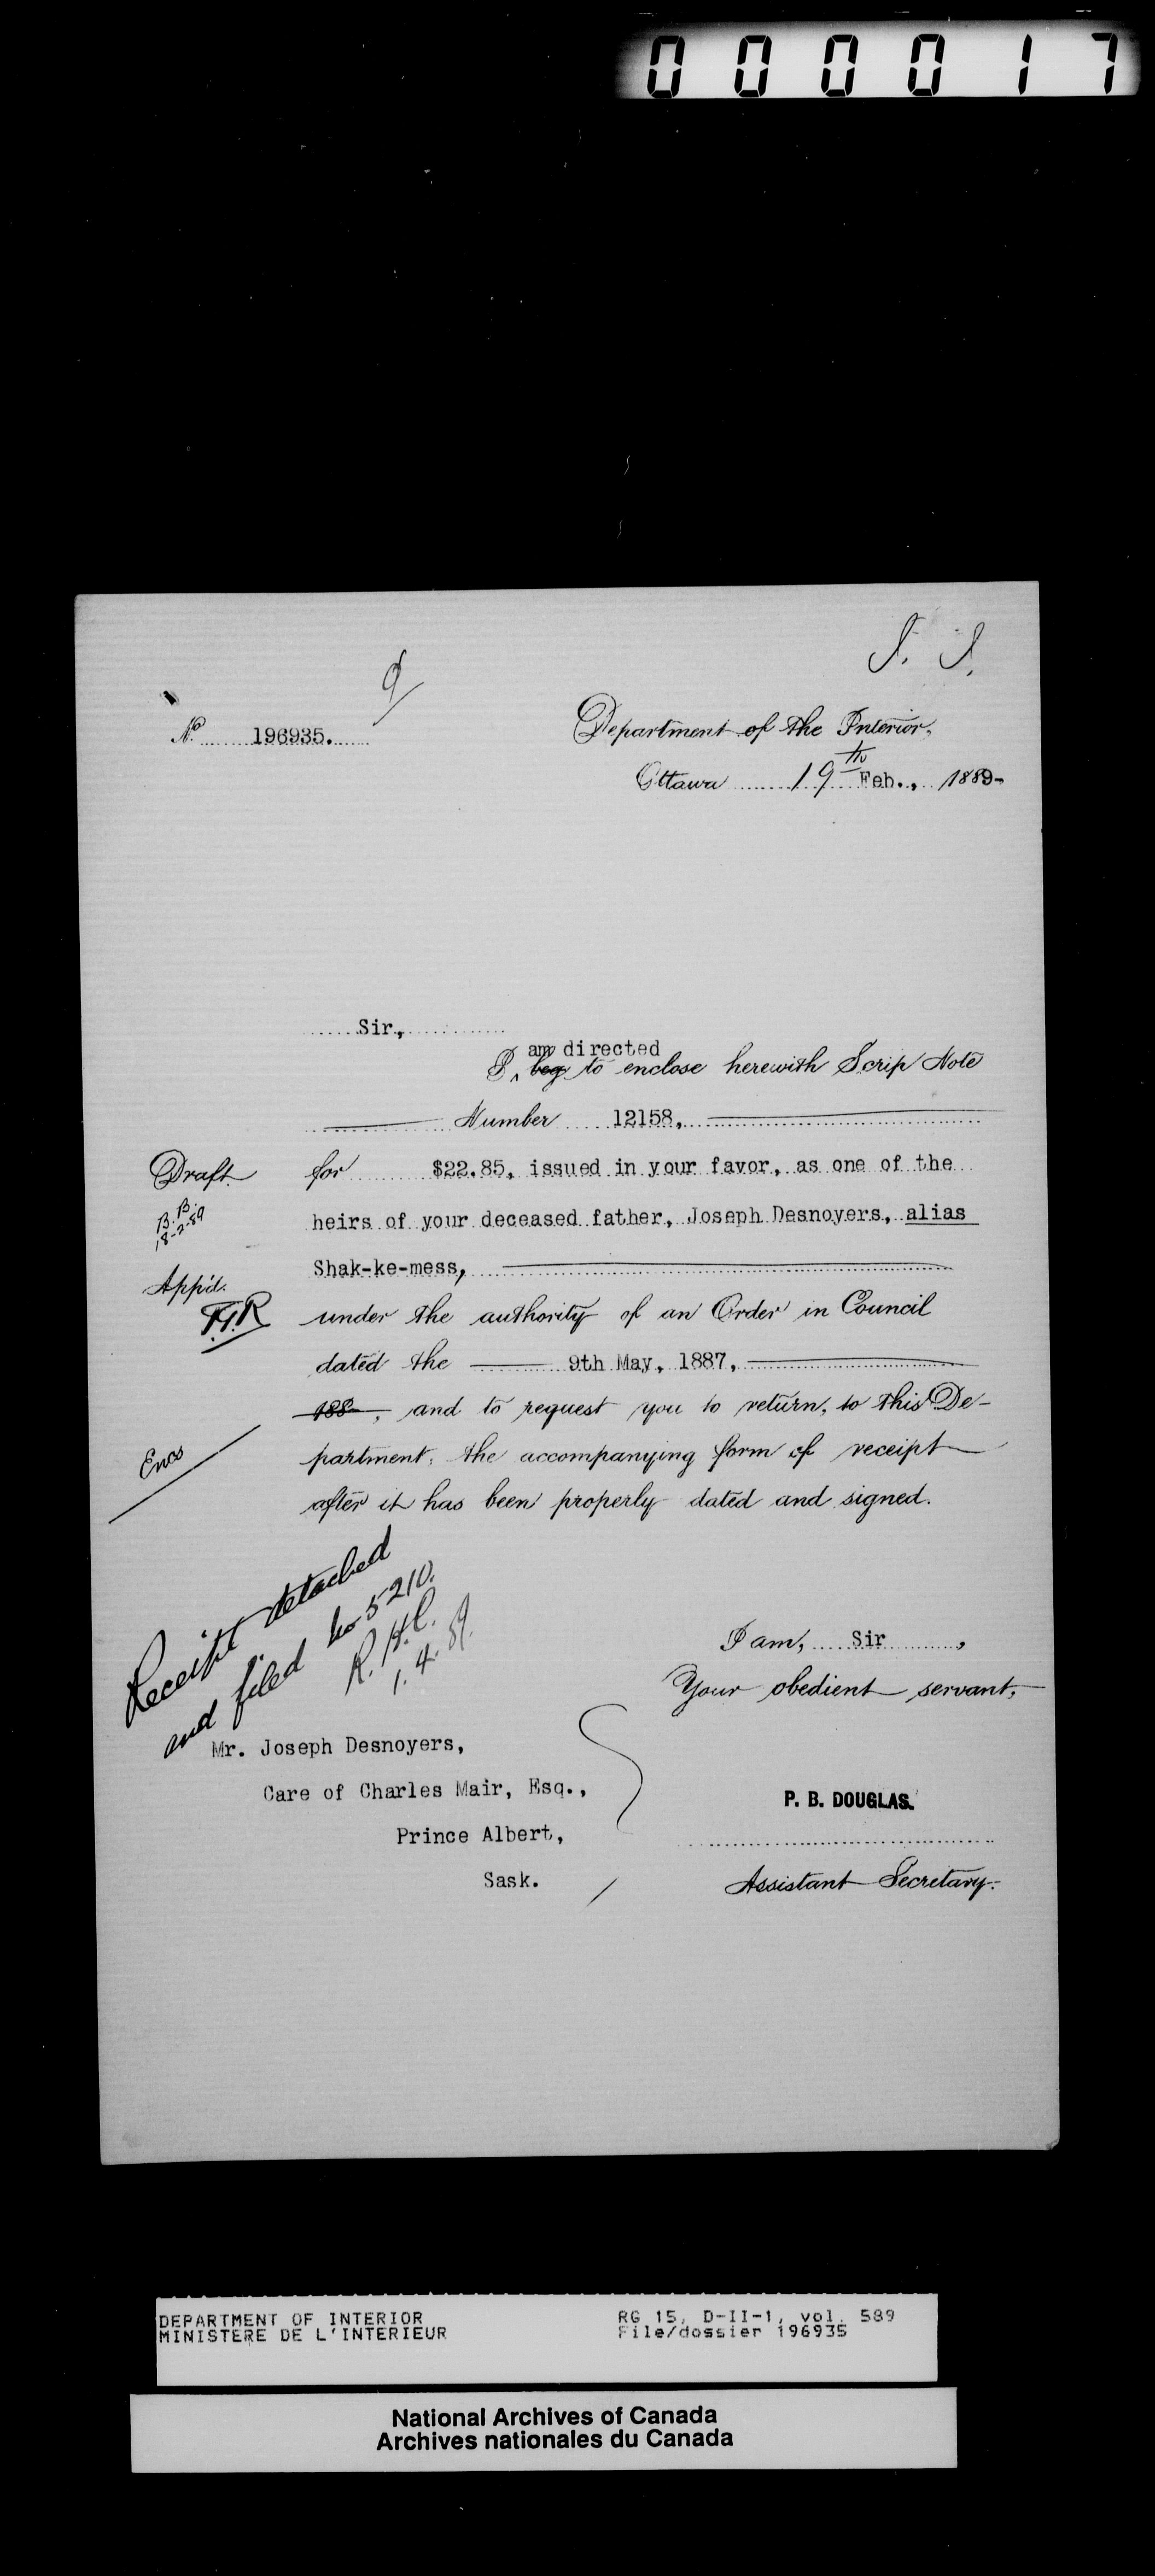 000017
No 196935.
Department of the Interior,
Ottawa 19th Feb., 1889-
Sir,
am directed
I beg to enclose herewith Scrip Note
Number 12158,
Draft
for $22.85, issued in your favor, as one of the
B.B.
18-2-89
heirs of your deceased father, Joseph Desnoyers, alias
Shak-ke-mess,
App'd.
under the authority of an Order in Council
dated the 9th May, 1887,
188 , and to request you to return, to this De-
Encs
partment, the accompanying form of receipt
after it has been properly dated and signed.
Receipt detached
and filed No 5210.
R.H.C.
1.4.89.
I am, Sir ,
Your obedient servant,
Mr. Joseph Desnoyers,
Care of Charles Mair, Esq.,
Prince Albert,
Sask.
P. B. DOUGLAS.
Assistant Secretary.
DEPARTMENT OF INTERIOR
MINISTERE DE L'INTERIEUR
RG 15, D-II-1, vol. 589
File/dossier 196935
National Archives of Canada
Archives nationales du Canada